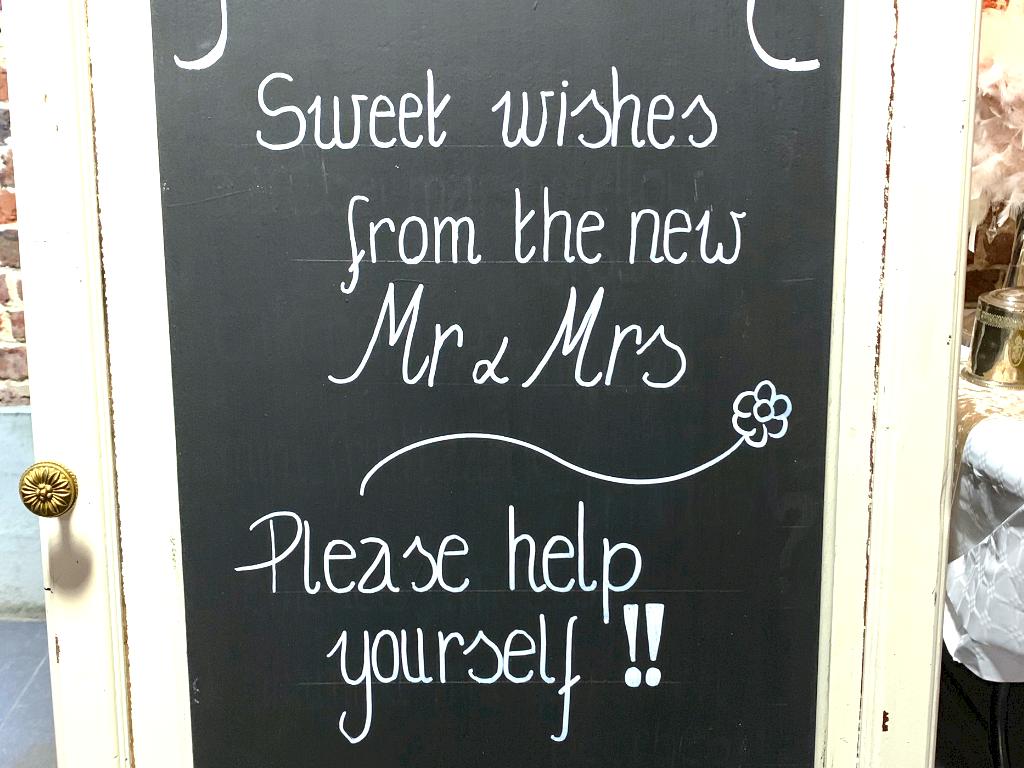 Sweet wishes
from the new
Mr & Mrs
Please help
yourself !!